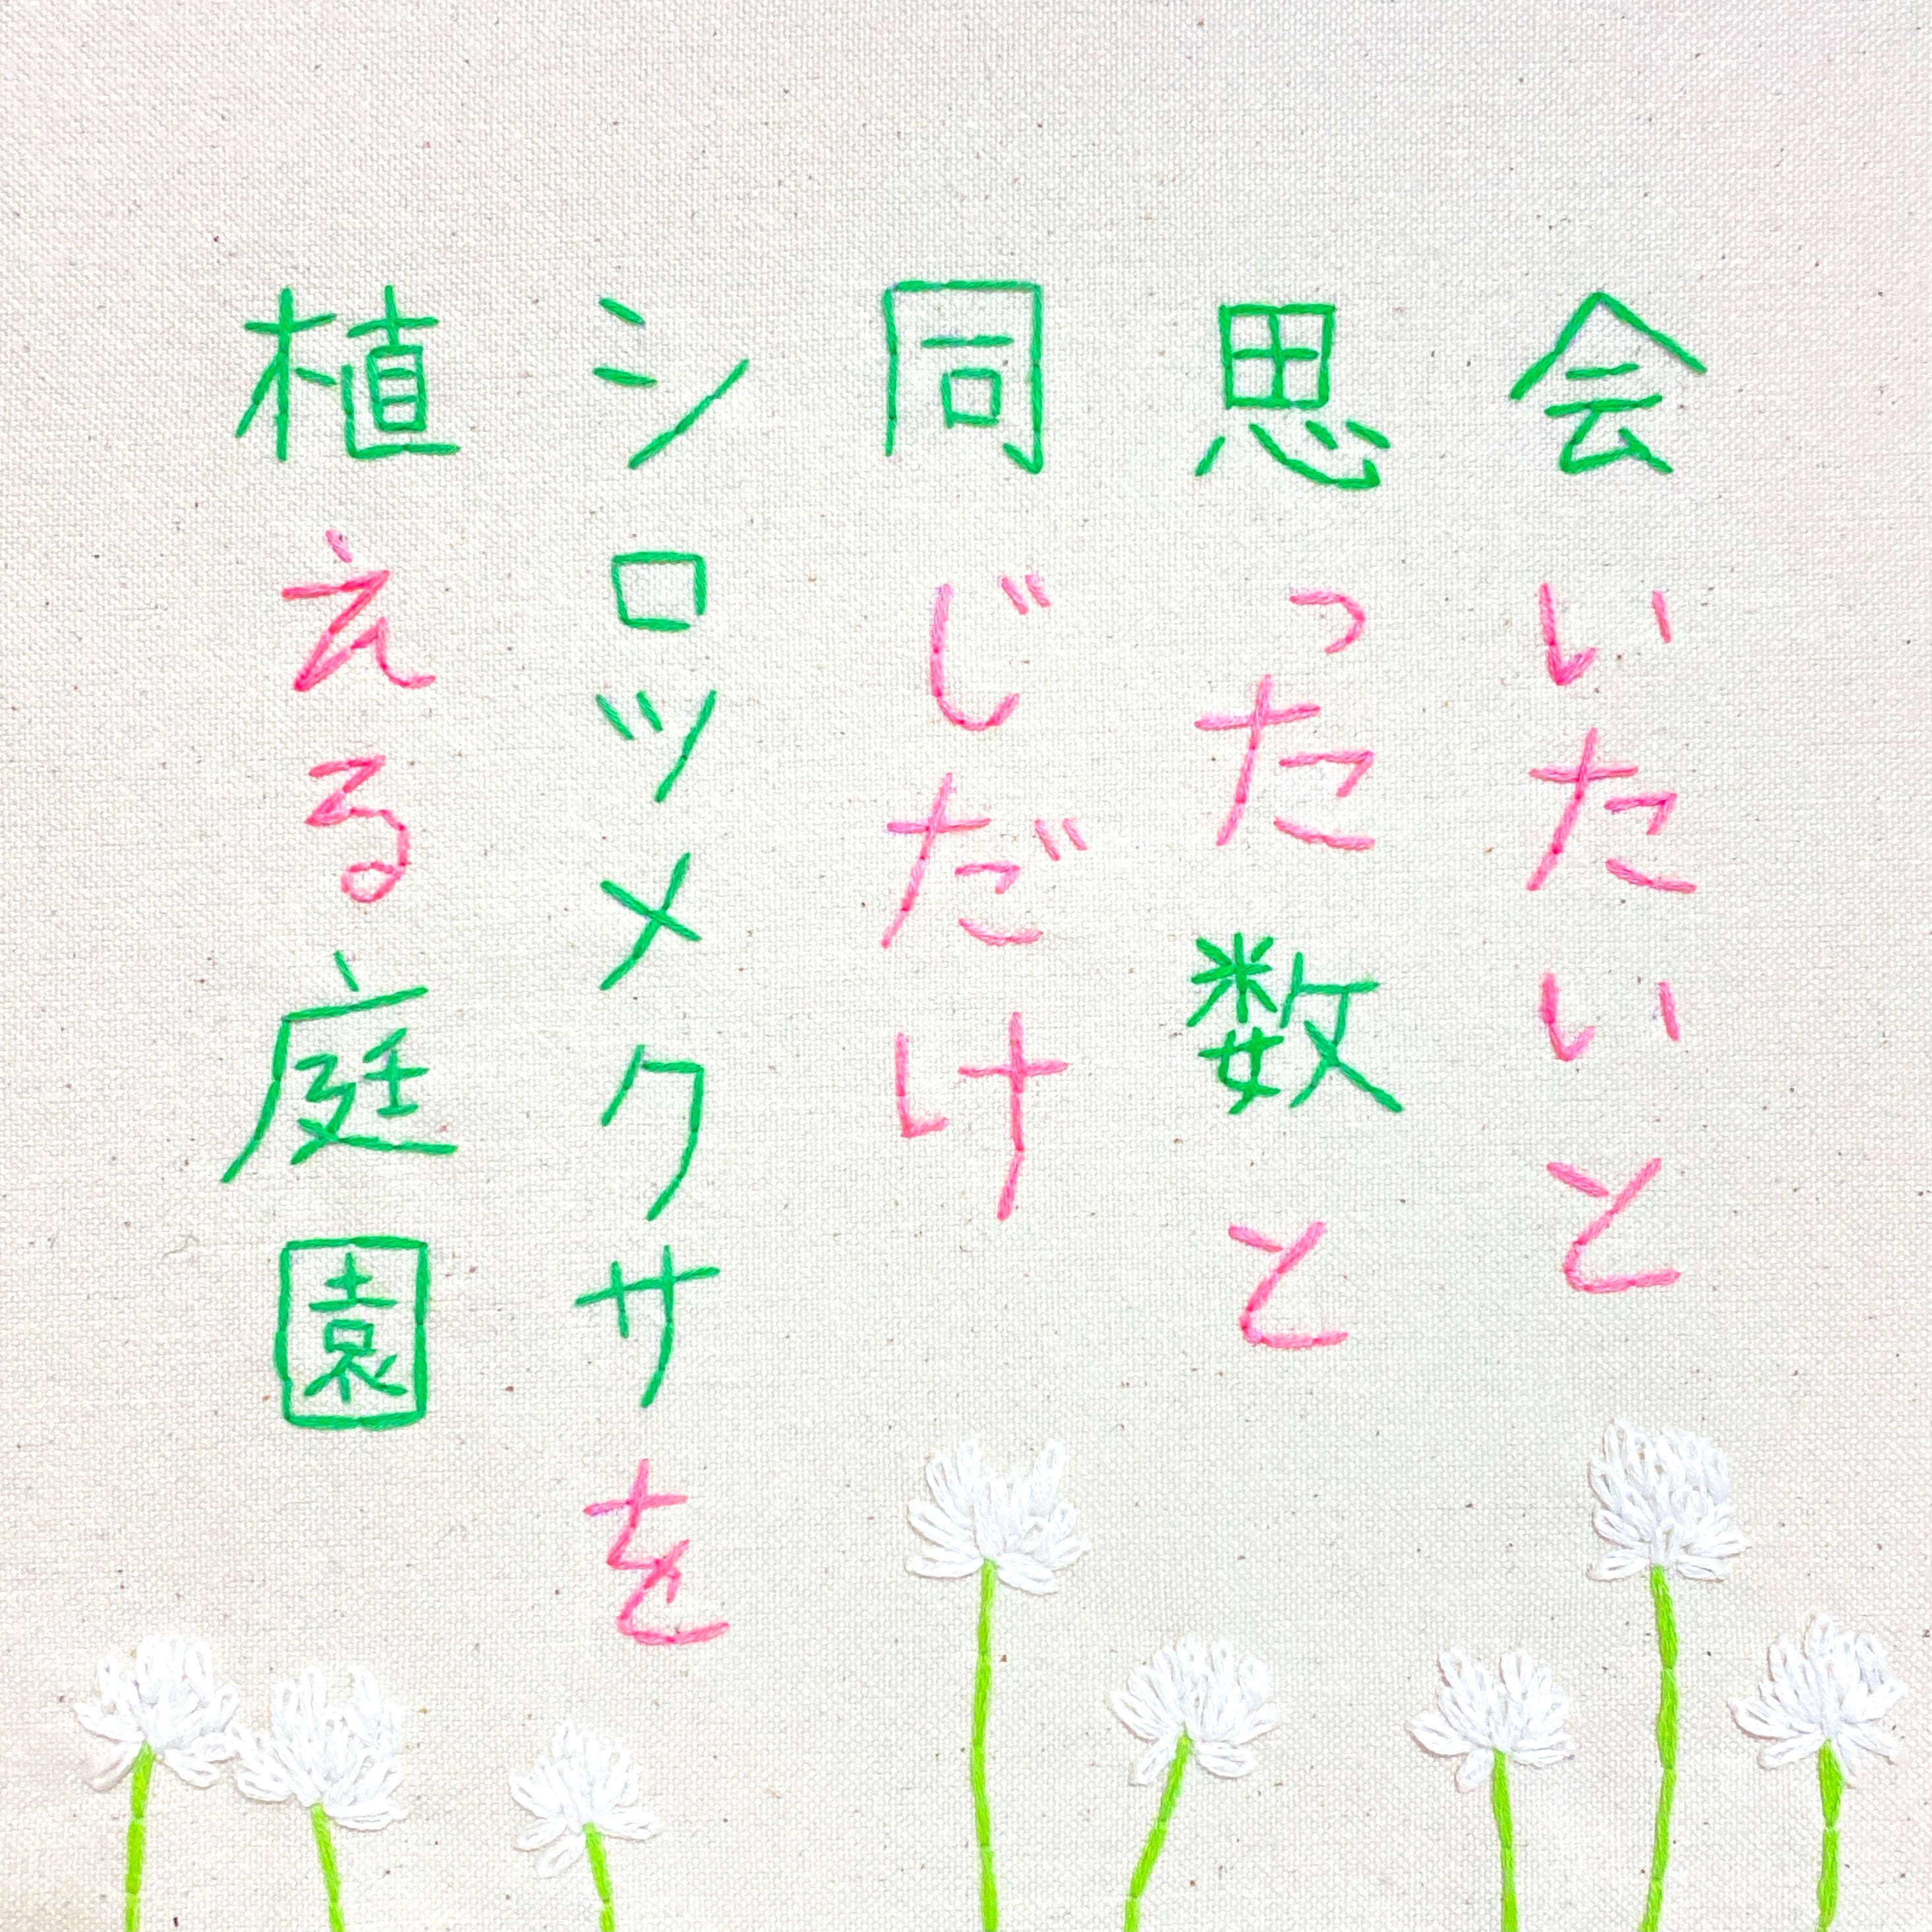 会いたいと
思った数と
同じだけ
シロツメクサを
植える庭園